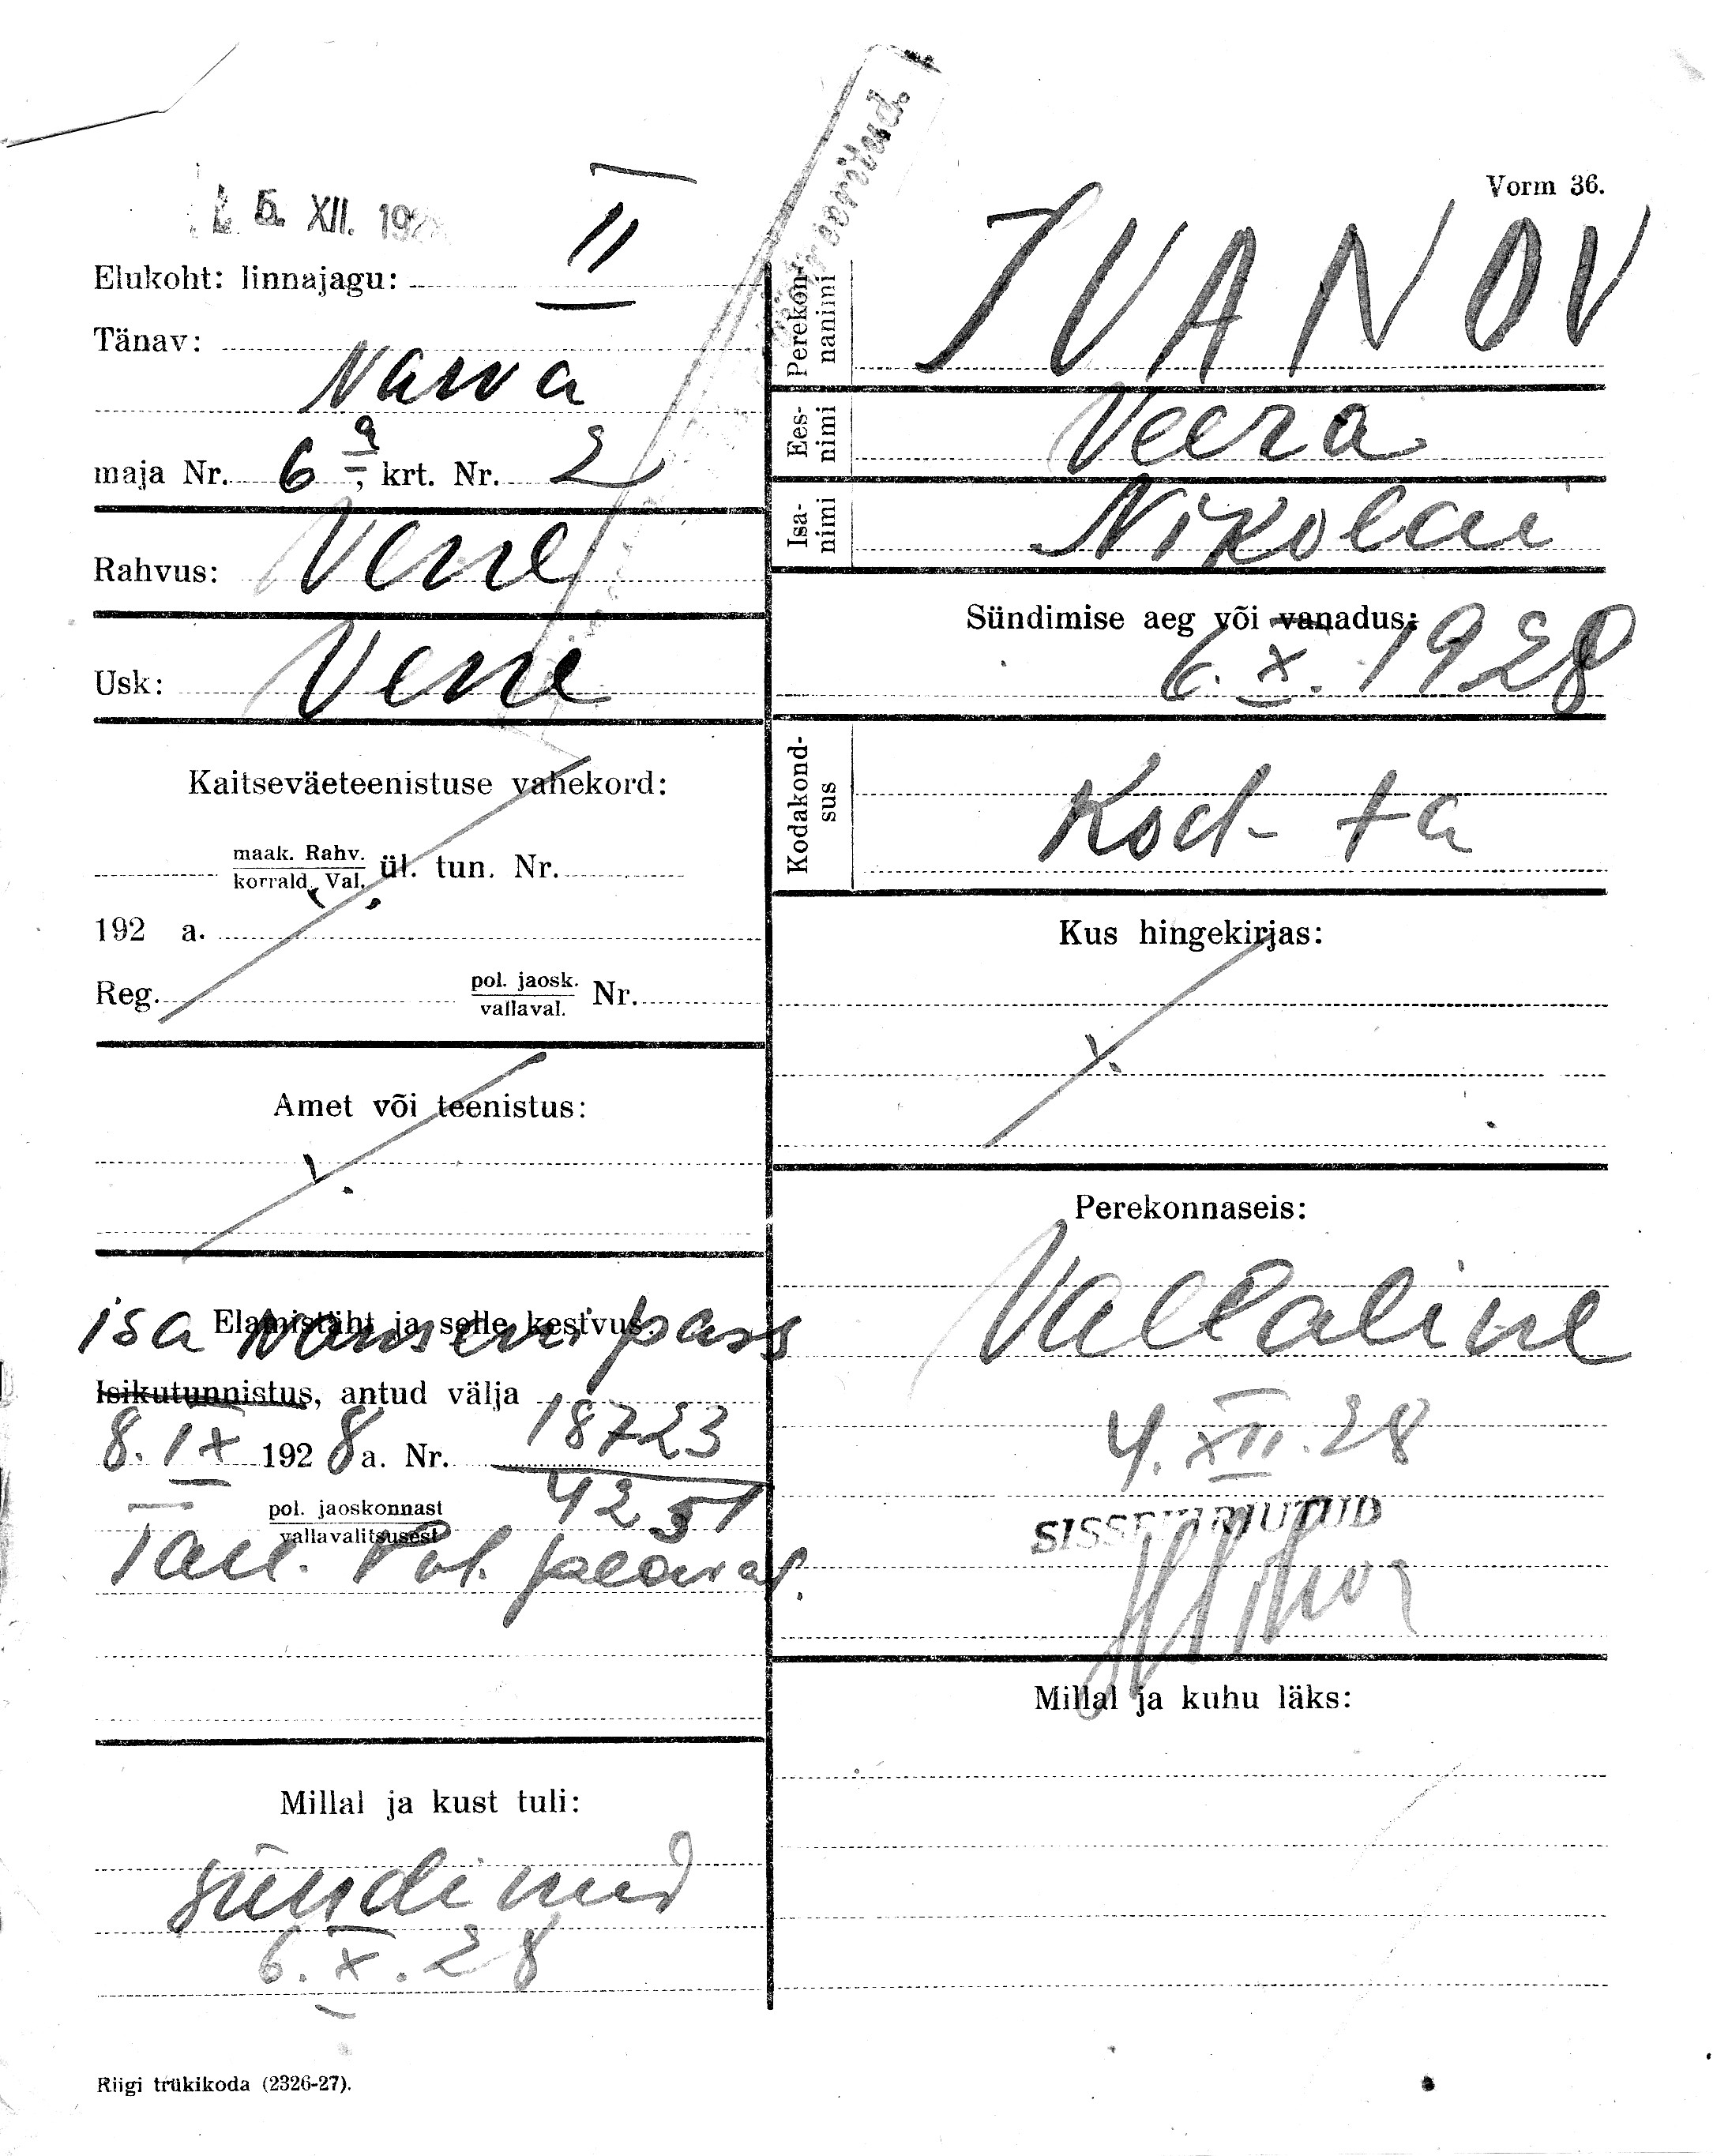 Vorm 36.
5. XII. 192
Elukoht: linnajagu: II
Tänav:
Narva
maja Nr. 6 a, krt. Nr. 2
Rahvus: Vene
Usk: Vene
Kaitseväeteenistuse vahekord:
maak. Rahv.
korrald. Val. ül. tun. Nr.
192 a.
Reg. pol. jaosk.
vallaval. Nr.
Amet või teenistus:
Elamistäht ja selle kestvus.
isa Nanseni pass
Isikutunnistus, antud välja
8. IX 1928 a. Nr. 18723
4251
pol. jaoskonnast
vallavalitsusest
Tall. Pol.
Millal ja kust tuli:
sündinud
6. X. 28
Riigi trükikoda (2326-27).
Perekon-
nanimi IVANOV
Ees-
nimi Veera
Isa-
nimi Nikolai
Sündimise aeg või vanadus:
6. X. 1928
Kodakond-
sus Kod-ta
Kus hingekirjas:
Perekonnaseis:
Vallaline
4. XII. 28
SISSEKIRJUTUD
Millal ja kuhu läks: